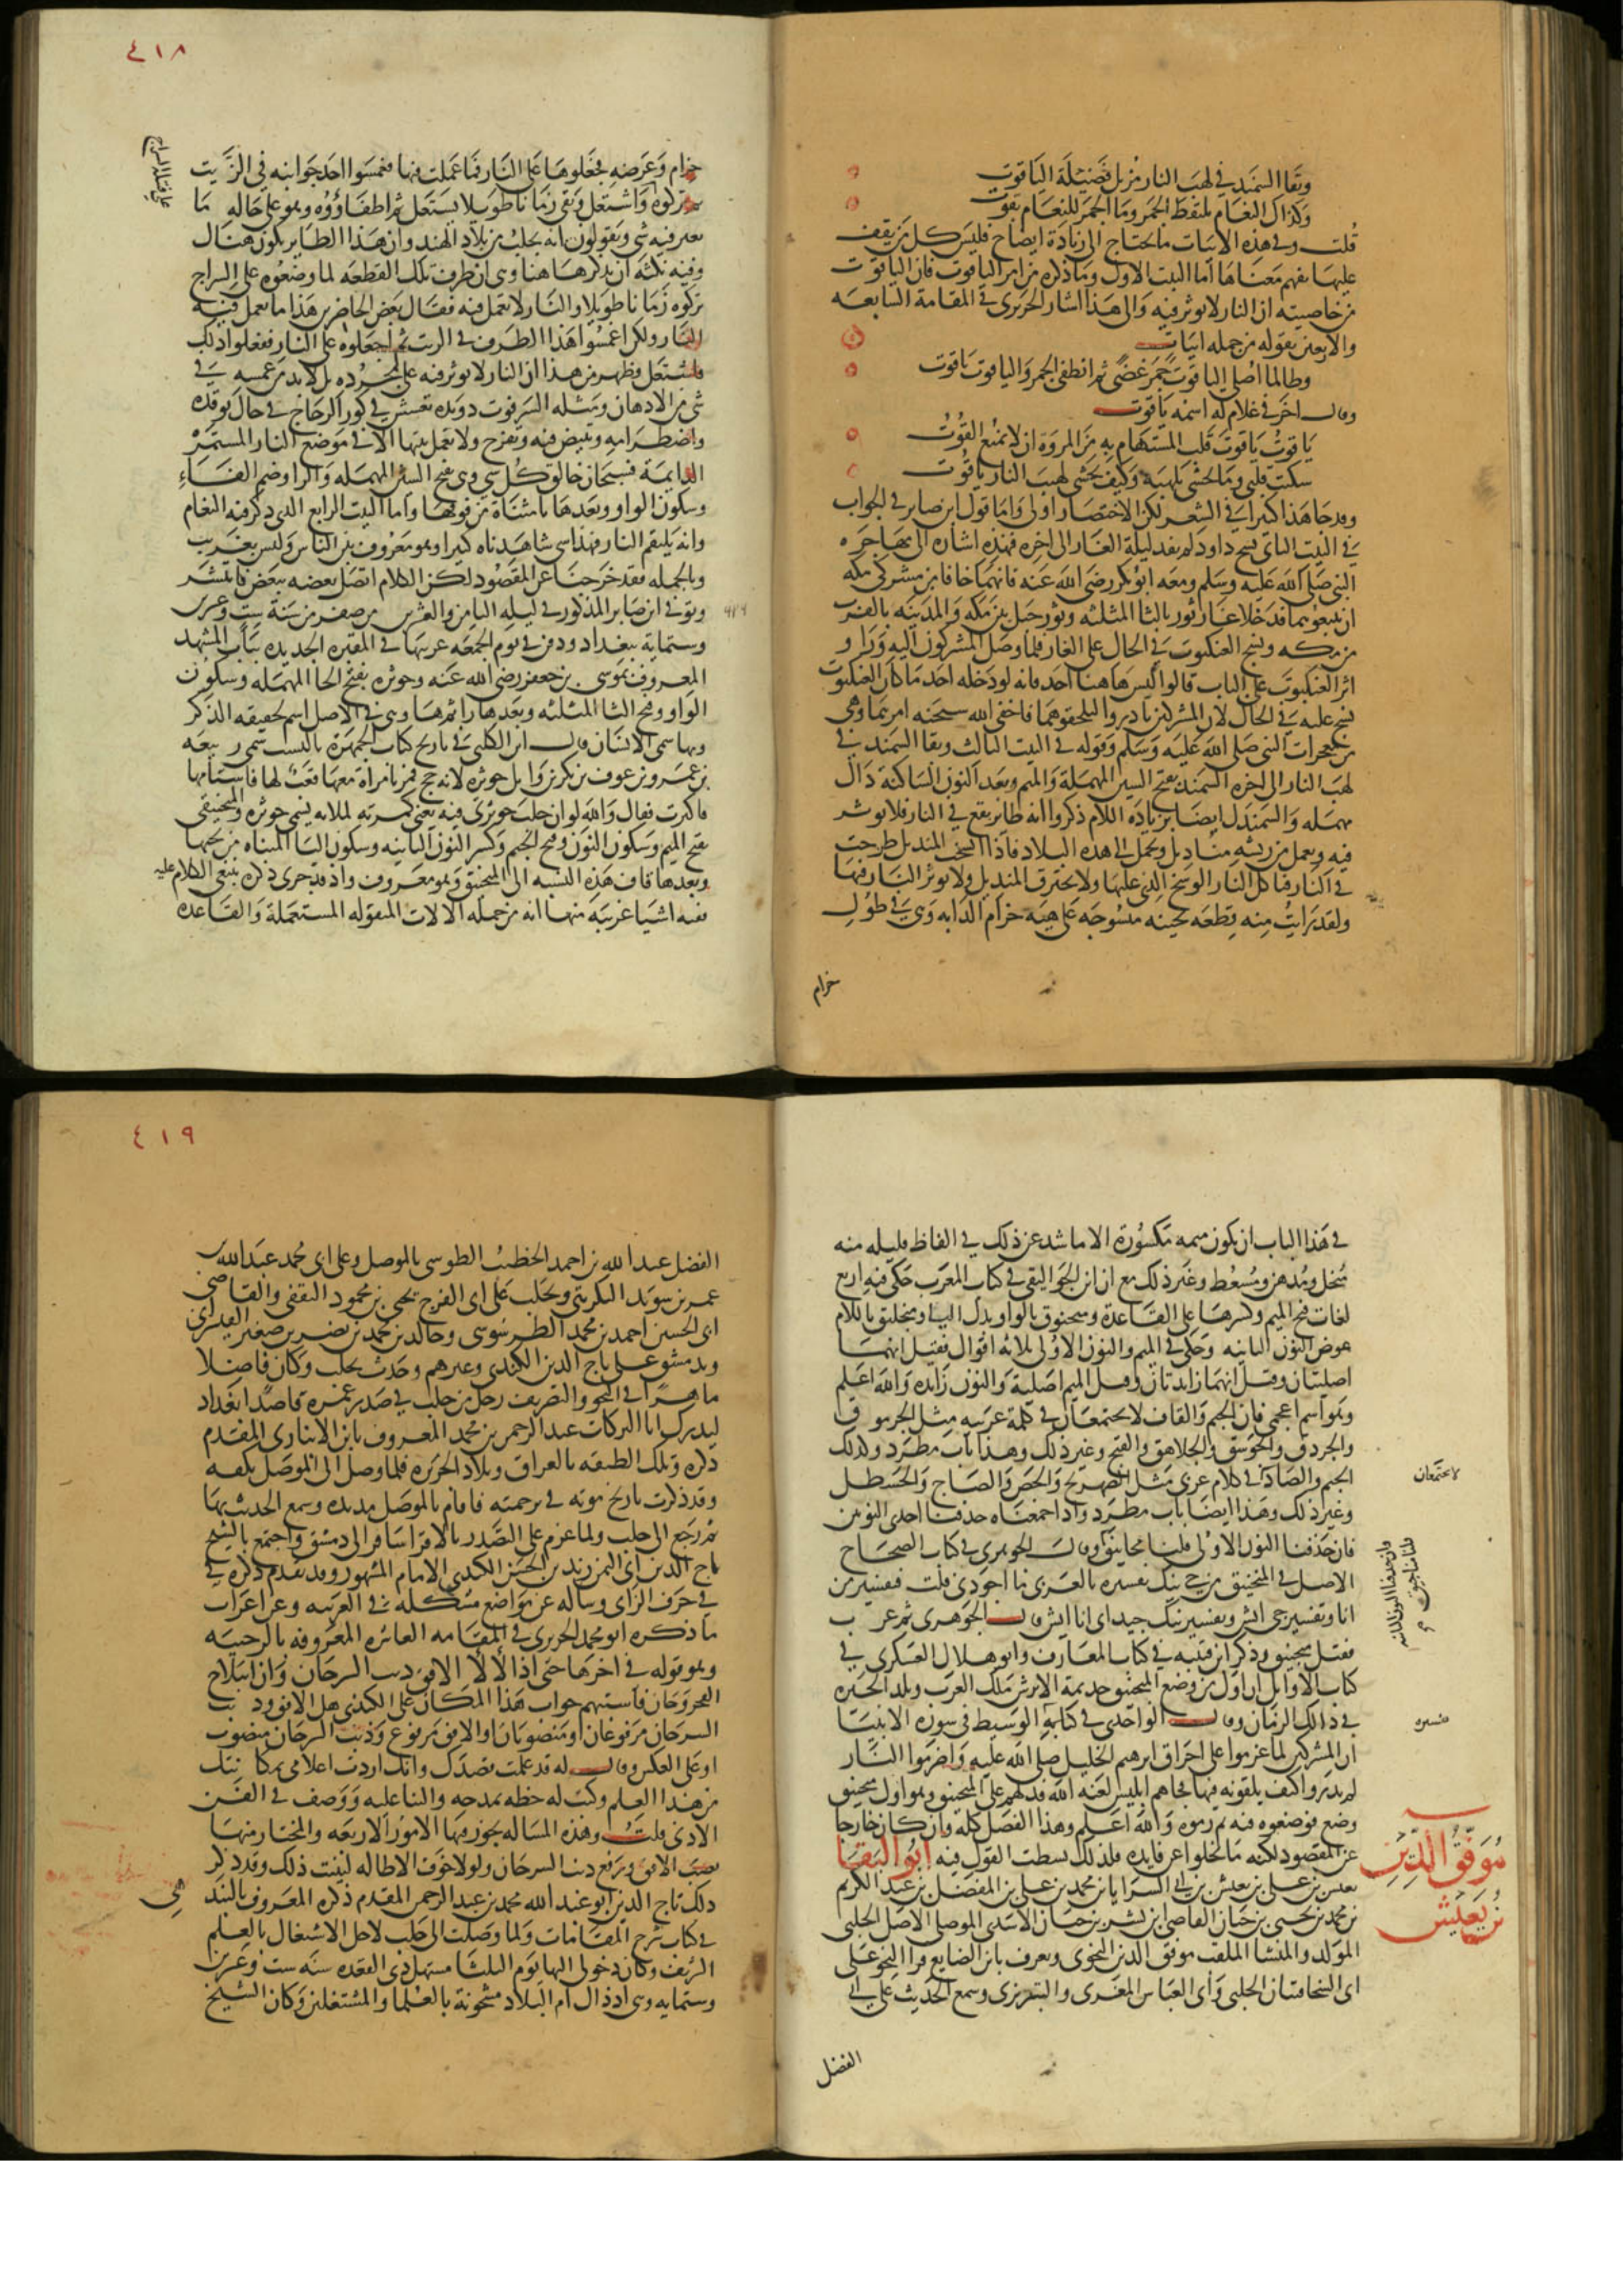 وبقا السمند في لهب النار مزيل فضيلة الياقوت
وكذاك النعام يلتقط الجمر وما الجمر للنعام بقوت
قلت وفي هذه الابيات ما يحتاج الى زيادة ايضاح فليس كل من يقف
عليها يفهم معناها اما البيت الاول وما ذكره من امر الياقوت فان الياقوت
من خاصيته ان النار لا توثر فيه والى هذا اشار الحريري في المقامة السابعه
والاربعين بقوله من جمله ابيات
وطالما اصلي الياقوت جمر غضى ثم انطفى الجمر والياقوت ياقوت
وقال اخر في غلام له اسمه ياقوت
ياقوت ياقوت قلب المستهام به من المروة ان لا يمنع القوت
سكنت قلبي وما تخشى تلهبه وكيف يخشى لهيب النار ياقوت
وقد جا هذا كثيرا في الشعر لكن الاختصار اولى واما قول ابن صابر في الجواب
في البيت الثاني نسج داود لم يفد ليلة الغار الى اخره فهذه اشارة الى مهاجره
النبي صلى الله عليه وسلم ومعه ابو بكر رضي الله عنه فانهما خافا من مشركي مكه
ان يتبعوهما فدخلا غار ثور بالثا المثلثه وثور جبل بين مكه والمدينه بالقرب
من مكه ونسج العنكبوت في الحال على الغار فلما وصل المشركون اليه وراوا
اثر العنكبوت على الباب قالوا ليس هاهنا احد فانه لو دخله احد ما كان العنكبوت
نسج عليه في الحال لان المشركين بادروا ليلحقوهما فاخفى الله سبحنه امرهما وهي
من معجزات النبي صلى الله عليه وسلم وقوله في البيت الثالث وبقا السمند في
لهب النار الى اخره السمند بفتح السين المهملة والميم وبعد النون الساكنة دال
مهمله والسمندل ايضا بزيادة اللام ذكروا انه طاير يقع في النار فلا توثر
فيه ويعمل من ريشه مناديل وتحمل الى هذه البلاد فاذا اتسخ المنديل طرحت
في النار فتاكل النار الوسخ الذي عليها ولا يحترق المنديل ولا توثر النار فيها
ولقد رايت منه قطعه ثخينه منسوجه على هيه حزام الدابه وهي في طول
حزام
٤١٨
حزام وعرضه فجعلوها على النار فما عملت فيها فغمسوا احد جوانبه في الزيت
ثم تركوه واشتعل وبقى زمانا طويلا يشتعل ثم اطفاؤوه وهو على حاله ما
تغير فيه شي ويقولون انه يجلب من بلاد الهند وان هذا الطاير يكون هناك
وفيه نكته ان نذكرها هنا وهي ان طرف تلك القطعه لما وضعوه على السراج
تركوه زمانا طويلا والنار لا تعمل فيه فقال بعض الحاضرين هذا ما تعمل فيه
النار ولكن اغمسوا هذا الطرف في الزيت ثم اجعلوه على النار ففعلوا ذلك
فاشتعل فظهر من هذا ان النار لا توثر فيه على تجرده بل لا بد من غمسه في
شي من الادهان ومثله السرفوت دويده تعشش في كور الزجاج في حال توقده
واضطرامه وتبيض فيه وتفرخ ولا تعمل بيتها الا في موضع النار المستمرة
الدايمة فسبحان خالق كل شي وهي بفتح السين المهمله والرا وضم الفاء
وسكون الواو وبعدها تا مثناة من فوقها واما البيت الرابع الذي ذكر فيه النعام
وانه يلتقم النار فهذا شي شاهدناه كثيرا وهو معروف بين الناس وليس بغريب
وبالجمله فقد خرجنا عن المقصود لكن الكلام اتصل بعضه ببعض فانتشر
وتوفي ابن صابر المذكور في ليله الثامن والعشرين من صفر من سنة ست وعشرين
وستمايه ببغداد ودفن في يوم الجمعه غربيها في المقبره الجديده بباب المشهد
المعروف بموسى بن جعفر رضي الله عنه وحوثره بفتح الحا المهمله وسكون
الواو وفتح الثا المثلثه وبعدها را ثم ها وهي في الاصل اسم لحشفه الذكر
وبها سمي الانسان قال ابن الكلبي في تاريخ كتاب الجمهرة بالنسب سمي ربيعه
بن عمرو بن عوف بن بكر بن وايل حوثره لانه حج فمر بامراة معها قعب لها فاستامها
فاكثرت فقال والله لو ادخلت حوثرتي فيه يعني كمرته لملاته فسمي حوثره والمنجنيقي
بفتح الميم وسكون النون وفتح الجيم وكسر النون الثانيه وسكون اليا المثناه من تحتها
وبعدها قاف هذه النسبه الى المنجنيق وهو معروف واذ قد جرى ذكره ينبغي الكلام عليه
ففيه اشيا غريبه منها انه من جمله الالات المنقوله المستعملة والقاعده
في هذا الباب ان يكون ميمه مكسورة الا ما شد عن ذلك في الفاظ قليله منه
منخل ومدهن ومسعط وغير ذلك مع ان ابن الجواليقي في كتاب المعرب حكى فيه اربع
لغات فتح الميم وكسرها على القاعدة ومنجنوق بالواو بدل اليا ومنجليق باللام
عوض النون الثانيه وحكى في الميم والنون الاولى ثلاثه اقوال فقيل انهما
اصليتان وقيل انهما زايدتان وقيل الميم اصلية والنون زايده والله اعلم
وهو اسم اعجمي فان الجيم والقاف لا يجتمعان في كلمة عربيه مثل الجرموق
والجردق والجوسق والجلاهق والقبج وغير ذلك وهذا باب مطرد وكذلك
الجيم والصاد في كلام عربي مثل الصهريج والجص والصاج والجسطل
لا يجتمعان
وغير ذلك وهذا ايضا باب مطرد واذا جمعناه حذفنا احدى النونين
فان حذفنا النون الاولى قلنا مجانيق وقال الجوهري في كتاب الصحاح
فان حذفنا النون الثانيه قلنا مناجيق
الاصل في المنجنيق من جي نيك تفسيره بالعربي ما اجودني قلت فتفسير من
انا وتفسير جي ايش وتفسير نيك جيد اي انا ايش قال الجوهري ثم عرب
فقيل منجنيق وذكر ابن قتيبه في كتاب المعارف وابو هلال العسكري في
كتاب الاوايل ان اول من وضع المنجنيق جذيمة الابرش ملك العرب وبلد الحيره
في ذلك الزمان وقال الواحدي في كتابه الوسيط في سورة الانبيا
ان المشركين لما عزموا على احراق ابرهيم الخليل صلى الله عليه واضرموا النار
لم يدروا كيف يلقونه فيها فجاهم ابليس لعنه الله فدلهم على المنجنيق وهو اول منجنيق
وضع فوضعوه فيه ثم رموه والله اعلم وهذا الفصل كله وان كان خارجا
عن المقصود لكنه ما يخلوا عن فايده فلذلك بسطت القول فيه ابو البقا
موفق الدين
بن يعيش
يعيش بن علي بن يعيش بن ابي السرايا بن محمد بن علي بن المفضل بن عبد الكريم
بن محمد بن يحيى بن حيان القاضي ابن بشر بن حيان الاسدي الموصلي الاصل الحلبي
المولد والمنشا الملقب موفق الدين النحوي ويعرف بابن الصايغ قرا النحو على
ابي السخا فتيان الحلبي وابي العباس المغربي والتبريزي وسمع الحديث على ابي
الفضل
٤١٩
الفضل عبد الله بن احمد الخطيب الطوسي بالموصل وعلى ابي محمد عبد الله بن
عمر بن سويد التكريتي وبحلب على ابي الفرج يحيى بن محمود الثقفي والقاضي
ابي الحسن احمد بن محمد الطرسوسي وخالد بن محمد بن نصر بن صغير القيسراني
وبدمشق على تاج الدين الكندي وغيرهم وحدث بحلب وكان فاضلا
ماهرا في النحو والتصريف رحل من حلب في صدر عمره قاصدا بغداد
ليدرك ابا البركات عبد الرحمن بن محمد المعروف بابن الانباري المقدم
ذكره وتلك الطبقه بالعراق وبلاد الجزيره فلما وصل الى الموصل بلغه
وقد ذكرت تاريخ موته في ترجمته فاقام بالموصل مديده وسمع الحديث بها
ثم رجع الى حلب ولما عزم على التصدر بالاقرا سافر الى دمشق واجتمع بالشيخ
تاج الدين ابي اليمن زيد بن الحسن الكندي الامام المشهور وقد تقدم ذكره في
في حرف الزاي وساله عن مواضع مشكله في العربيه وعن اعراب
ما ذكره ابو محمد الحريري في المقامه العاشره المعروفه بالرحبيه
وهو قوله في اخرها حتى اذا لألأ الافق ذنب السرحان وان ابتلاج
الفجر وحان فاستبهم جواب هذا المكان على الكندي هل الافق وذنب
السرحان مرفوعان او منصوبان او الافق مرفوع وذنب السرحان منصوب
او على العكس وقال له قد علمت قصدك وانك اردت اعلامي بمكانتك
من هذا العلم وكتب له خطه بمدحه والثنا عليه ووصف في الفن
الادبي قلت وهذه المساله يجوز فيها الامور الاربعه والمختار منها
نصب الافق ورفع ذنب السرحان ولولا خوف الاطاله لبينت ذلك وقد ذكر
ذلك تاج الدين ابو عبد الله محمد بن عبد الرحمن المقدم ذكره المعروف بالبندهي
في كتاب شرح المقامات ولما وصلت الى حلب لاجل الاشتغال بالعلم
الشريف وكان دخولي اليها يوم الثلثا مستهل ذي القعده سنه ست وعشرين
وستمايه وهي اذ ذاك ام البلاد مشحونة بالعلما والمشتغلين وكان الشيخ